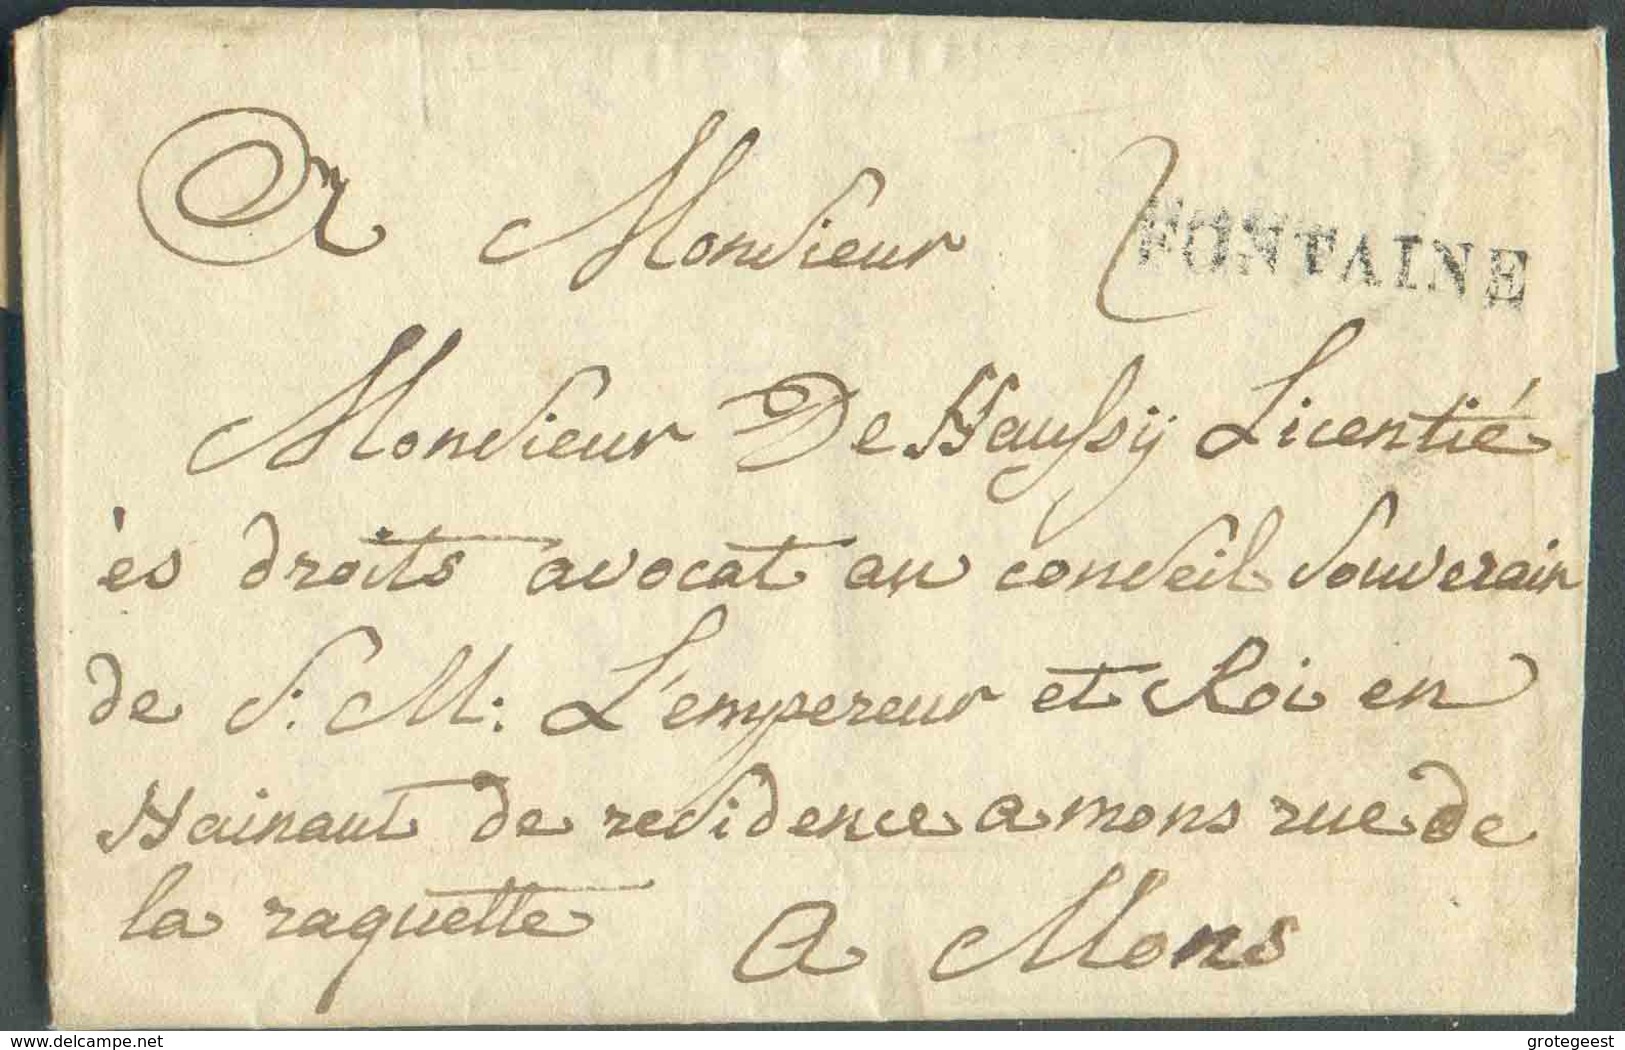 A Monsieur 2 FONTAINE
Monsieur De Haussÿ Licentié
ès droits avocat au conseil souverain
de S: M: L'empereur et Roi en
Hainaut de residence a mons rue de
la raquette
A Mons
delcampe.net
grotegeest